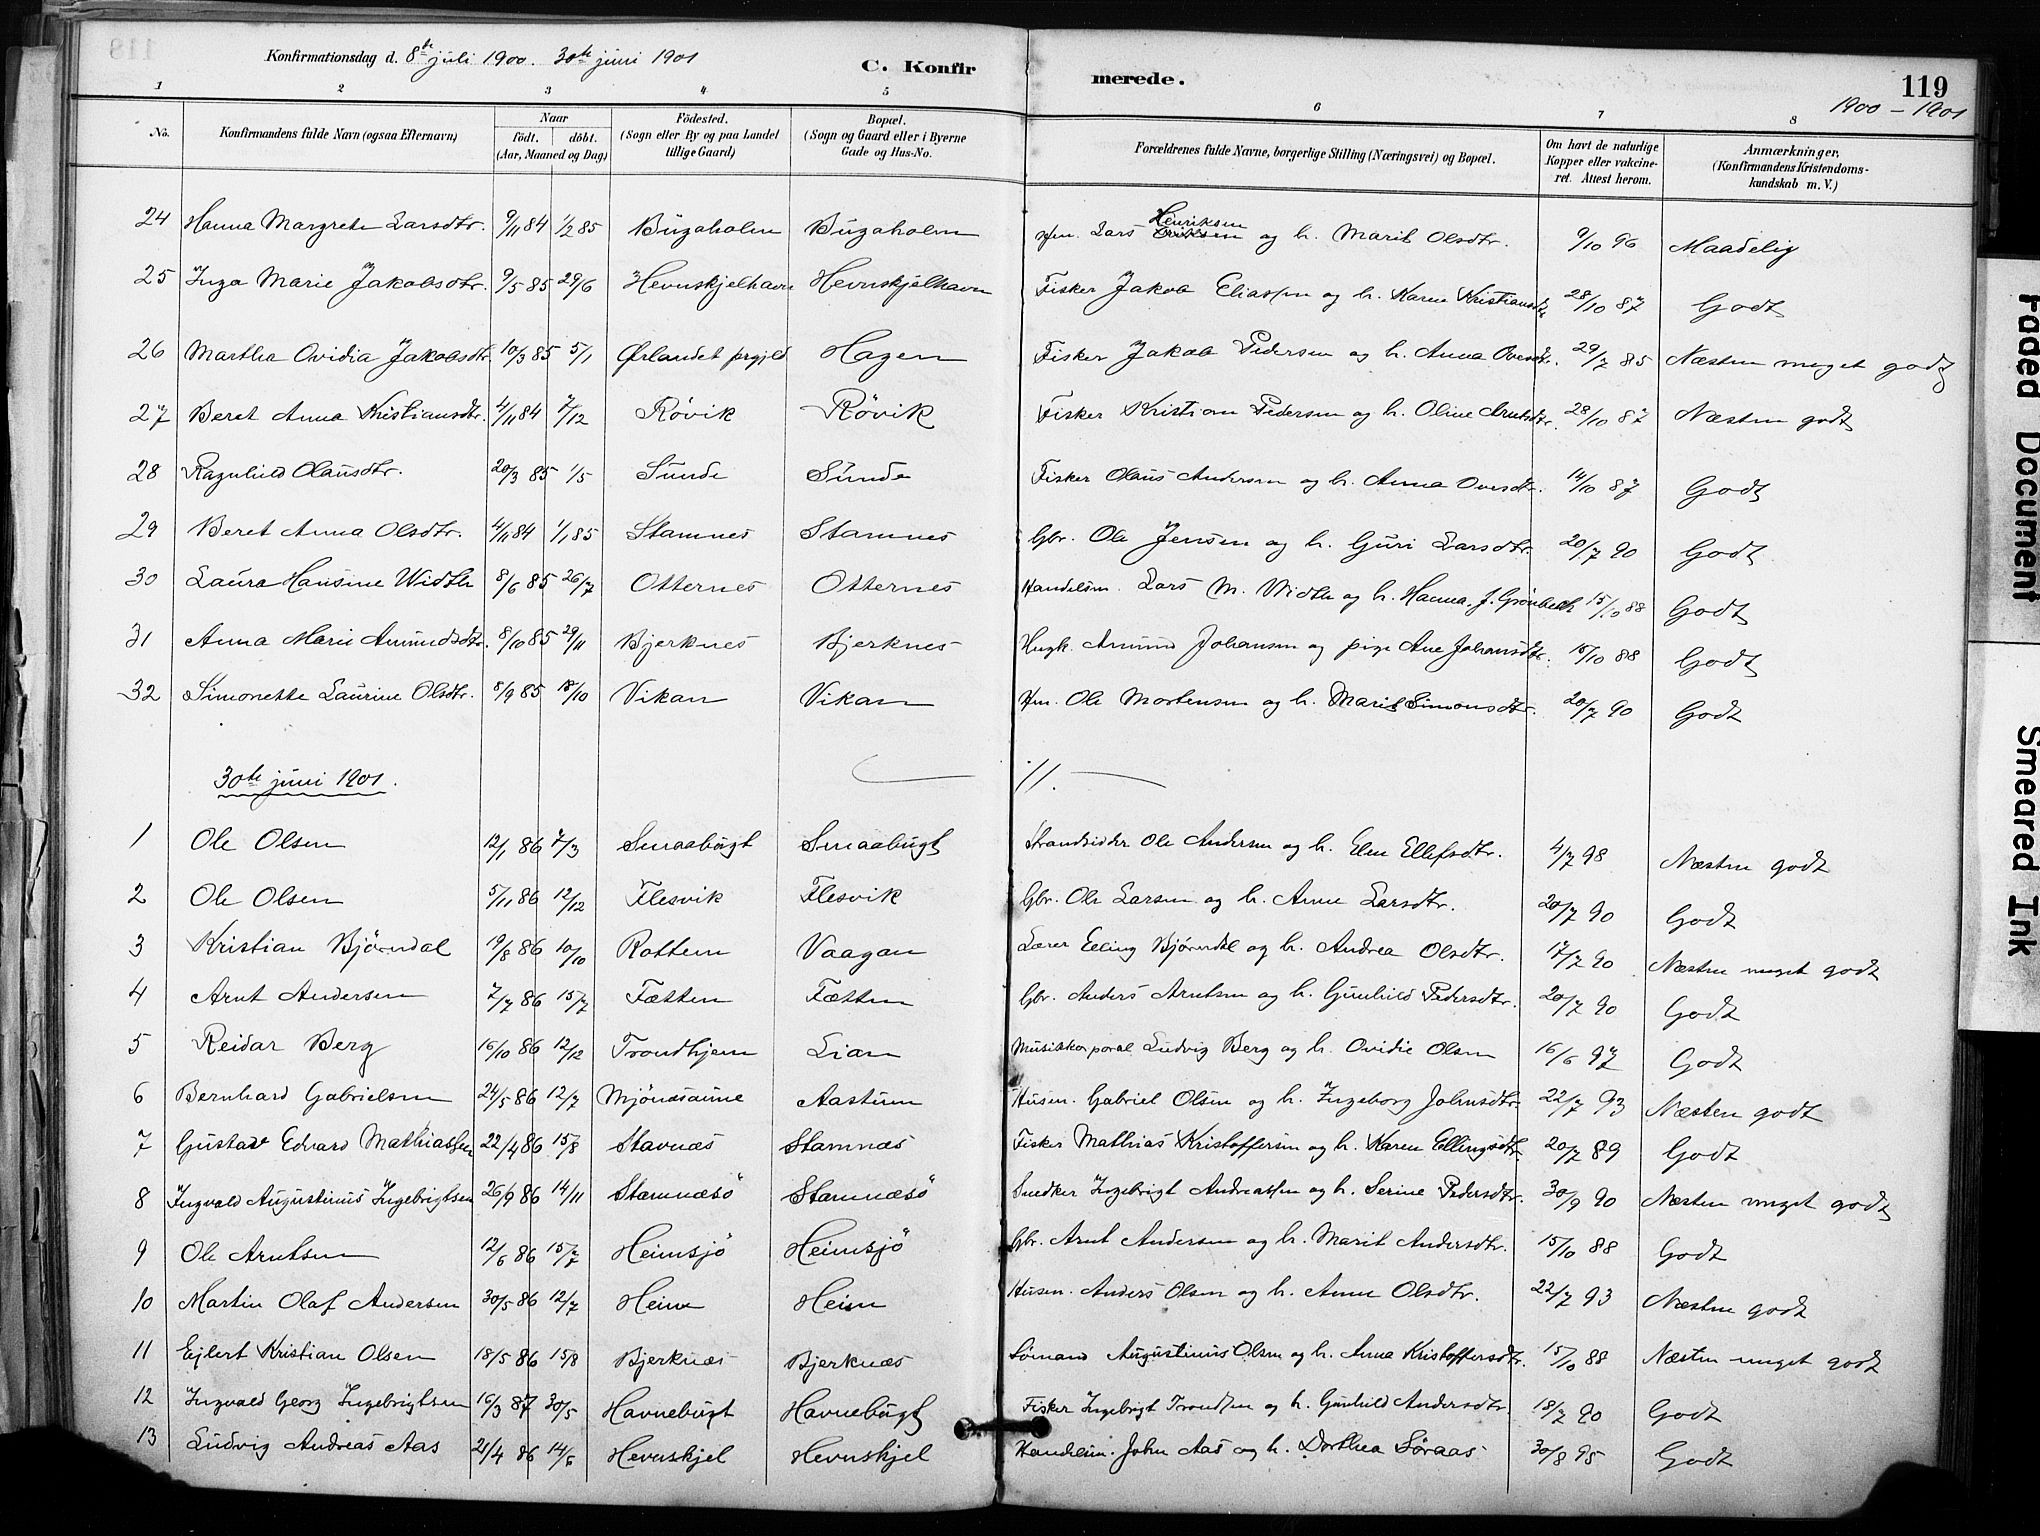 Konfirmationsdag d. 8de juli 1900. 30te juni 1901
C. Konfirmerede.
119
1900 - 1901
1 2 3 4 5 6 7 8
No. Konfirmandens fulde Navn (ogsaa Efternavn) Naar födt. döbt. (Aar, Maaned og Dag) Födested. (Sogn eller By og paa Landet tillige Gaard) Bopæl. (Sogn og Gaard eller i Byerne Gade og Hus-No. Forældrenes fulde Navne, borgerlige Stilling (Næringsvei) og Bopæl. Om havt de naturlige Kopper eller vakcineret. Attest herom. Anmærkninger, (Konfirmandens Kristendomskundskab m. V.)
24 Hanna Margrete Larsdtr. 9/11 84 1/2 85 Bugaholm Bugaholm Hm. Lars Henriksen og h. Marit Olsdtr. 9/10 96 Maadelig
25 Inga Marie Jakobsdtr. 9/5 85 29/6 Hevnskjelhavn Hevnskjelhavn Fisker Jakob Eliassen og h. Karen Kristiansdtr. 28/10 87 Godt
26 Martha Ovidia Jakobsdtr. 10/3 85 5/1 Ørlandet prgjld Hagen Fisker Jakob Pedersen og h. Anna Ovesdtr. 29/7 85 Næsten meget godt
27 Beret Anna Kristiansdtr. 4/11 84 7/12 Rövik Rövik Fisker Kristian Pedersen og h. Oline Arntsdtr. 28/10 87 Næsten godt
28 Ragnhild Olausdtr. 20/3 85 1/5 Sunde Sunde Fisker Olaus Andersen og h. Anna Ovesdtr. 14/10 87 Godt
29 Beret Anna Olsdtr. 4/11 84 1/1 85 Stamnes Stamnes Gbr. Ole Jensen og h. Guri Larsdtr. 20/7 90 Godt
30 Laura Hansine Width 8/6 85 26/7 Otternes Otternes Handelsm. Lars M. Width og h. Hanna J. Grönbech 15/10 88 Godt
31 Anna Marie Amundsdtr. 8/10 85 29/11 Bjerknes Bjerknes Ungk. Amund Johansen og pige Ane Johansdtr. 15/10 88 Godt
32 Simonette Laurine Olsdtr. 8/9 85 18/10 Vikan Vikan Hm. Ole Mortensen og h. Marit Simonsdtr. 20/7 90 Godt
30te juni 1901. — // —
1 Ole Olsen 12/1 86 7/3 Smaabugt Smaabugt Strandsidder Ole Andersen og h. Elen Ellefsdtr. 4/7 98 Næsten godt
2 Ole Olsen 5/11 86 12/12 Flesvik Flesvik Gbr. Ole Larsen og h. Anne Larsdtr. 20/7 90 Godt
3 Kristian Bjørndal 19/8 86 10/10 Rottem Vaagan Lærer Elling Bjørndal og h. Andrea Olsdtr. 17/7 90 Næsten meget godt
4 Arnt Andersen 7/7 86 15/7 Fætten Fætten Gbr. Anders Arntsen og h. Gunhild Pedersdtr. 20/7 90 Godt
5 Reidar Berg 16/10 86 12/12 Trondhjem Lian Musikkorporal Ludvig Berg og h. Ovidie Olsen 16/6 97 Godt
6 Bernhard Gabrielsen 24/5 86 12/7 Mjönesaune Aastum Husm. Gabriel Olsen og h. Ingeborg Johnsdtr. 22/7 93 Næsten godt
7 Gustav Edvard Mathiassen 22/4 86 15/8 Stavnæs Stamnæs Fisker Mathias Kristoffersen og h. Karen Ellingsdtr. 20/7 89 Godt
8 Ingvald Augustinus Ingebrigtsen 26/9 86 14/11 Stamnæsö Stamnæsö Snedker Ingebrigt Andreassen og h. Serine Pedersdtr. 30/9 90 Næsten meget godt
9 Ole Arntsen 12/6 86 15/7 Heimsjö Heimsjö Gbr. Arnt Andersen og h. Marit Andersdtr. 15/10 88 Godt
10 Martin Olaf Andersen 30/5 86 12/7 Heim Heim Husm. Anders Olsen og h. Anne Olsdtr. 22/7 93 Næsten godt
11 Ejlert Kristian Olsen 18/5 86 15/8 Bjerknæs Bjerknæs Sömand Augustinus Olsen og h. Anna Kristoffersdtr. 15/10 88 Næsten meget godt
12 Ingvald Georg Ingebrigtsen 16/3 87 30/5 Havnebugt Havnebugt Fisker Ingebrigt Trondsen og h. Gunhild Andersdtr. 18/7 90 Godt
13 Ludvig Andreas Aas 21/4 86 14/6 Hevnskjel Hevnskjel Handelsm. John Aas og h. Dorthea Söraas 30/8 95 Godt
Faded Document
Smeared Ink